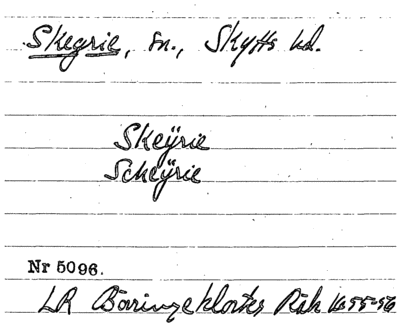 Skegrie, sn., Skytts hd.
Skeÿrie
Sckeÿrie
Nr 5096.
LR Börringeklosters Räk 1655-56